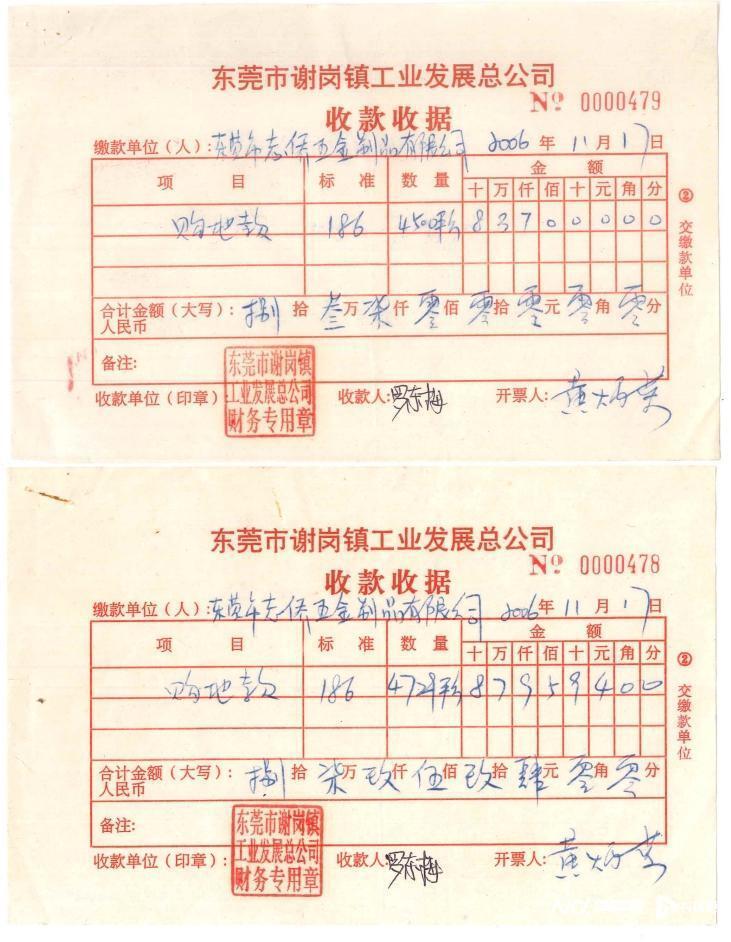 东莞市谢岗镇工业发展总公司
收款收据 № 0000479
缴款单位（人）：东莞市志侨五金制品有限公司 2006年11月17日
项目 标准 数量 金额
十 万 仟 佰 十 元 角 分
购地款 186 4500平方 8 3 7 0 0 0 0 0
合计金额（大写）：捌拾叁万柒仟零佰零拾零元零角零分
人民币
备注：
收款单位（印章）： 收款人：罗东梅 开票人：
东莞市谢岗镇
工业发展总公司
财务专用章
② 交缴款单位
东莞市谢岗镇工业发展总公司
收款收据 № 0000478
缴款单位（人）：东莞市志侨五金制品有限公司 2006年11月17日
项目 标准 数量 金额
十 万 仟 佰 十 元 角 分
购地款 186 4729平方 8 7 9 5 9 4 0 0
合计金额（大写）：捌拾柒万玖仟伍佰玖拾肆元零角零分
人民币
备注：
收款单位（印章）： 收款人：罗东梅 开票人：
东莞市谢岗镇
工业发展总公司
财务专用章
② 交缴款单位